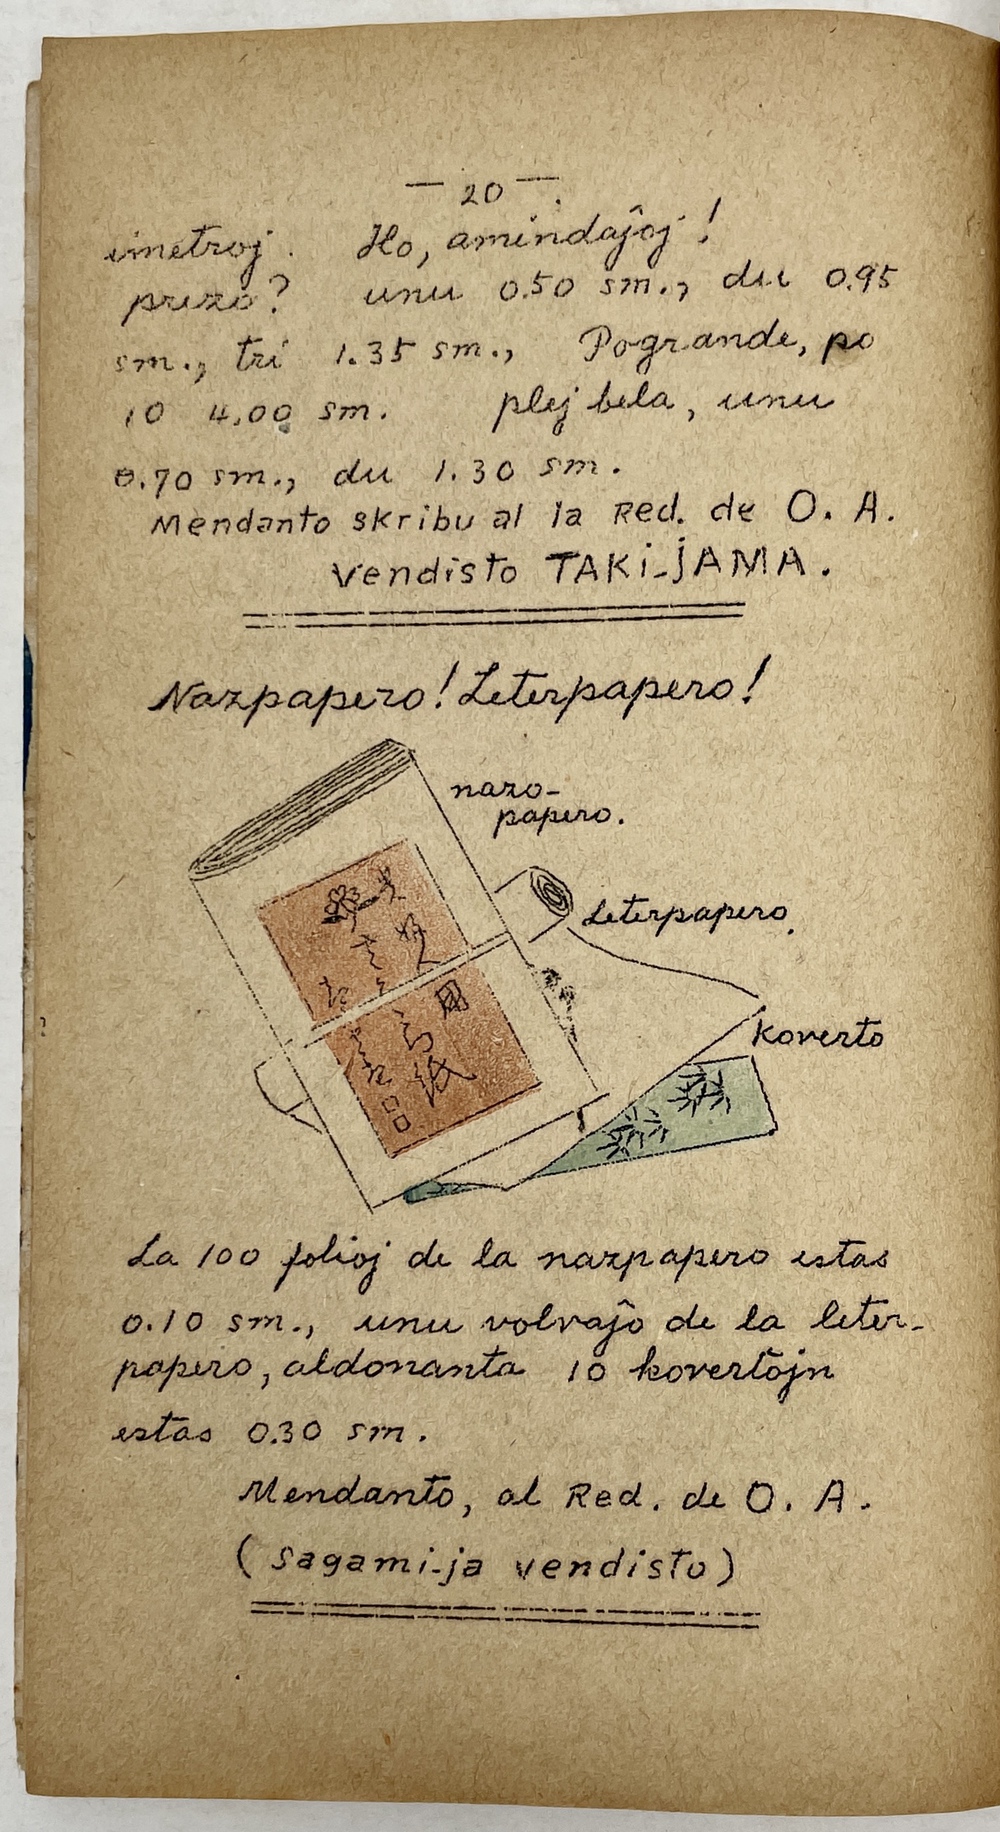 — 20 —
imetroj. Ho, amindaĵoj!
prezo? unu 0.50 sm., du 0.95
sm., tri 1.35 sm., Pogrande, po
10 4,00 sm. plej bela, unu
0.70 sm., du 1.30 sm.
Mendanto skribu al la Red. de O. A.
Vendisto TAKi-jAMA.
Nazpapero! Leterpapero!
nazo-
papero.
Leterpapero.
Koverto
用
紙
品
La 100 folioj de la nazpapero estas
0.10 sm., unu volvaĵo de la leter-
papero, aldonanta 10 kovertojn
estas 0.30 sm.
Mendanto, al Red. de O. A.
(Sagami-ja vendisto)